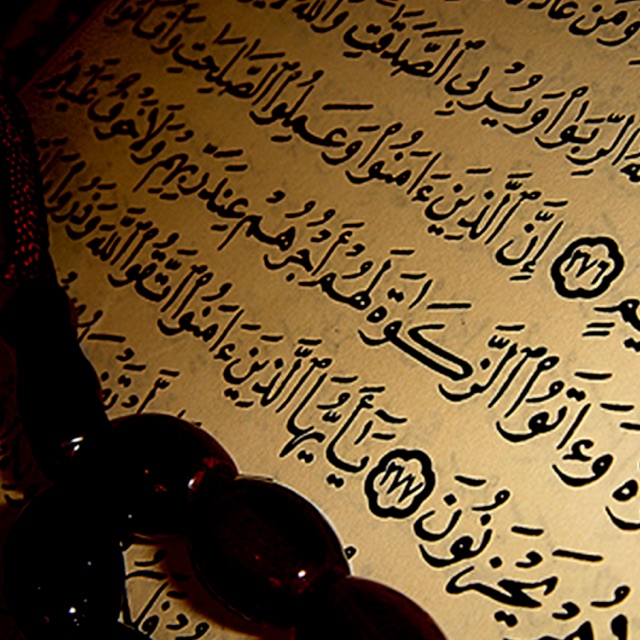 وَمَنْ عَادَ
ٱلرِّبَوٰا۟ وَيُرْبِى ٱلصَّدَقَٰتِ وَٱللَّهُ
٢٧٦ إِنَّ ٱلَّذِينَ ءَامَنُوا۟ وَعَمِلُوا۟ ٱلصَّٰلِحَٰتِ
وَءَاتَوُا۟ ٱلزَّكَوٰةَ لَهُمْ أَجْرُهُمْ عِندَ رَبِّهِمْ وَلَا خَوْفٌ عَلَيْهِمْ
يَحْزَنُونَ ٢٧٧ يَٰٓأَيُّهَا ٱلَّذِينَ ءَامَنُوا۟ ٱتَّقُوا۟ ٱللَّهَ وَذَرُوا۟